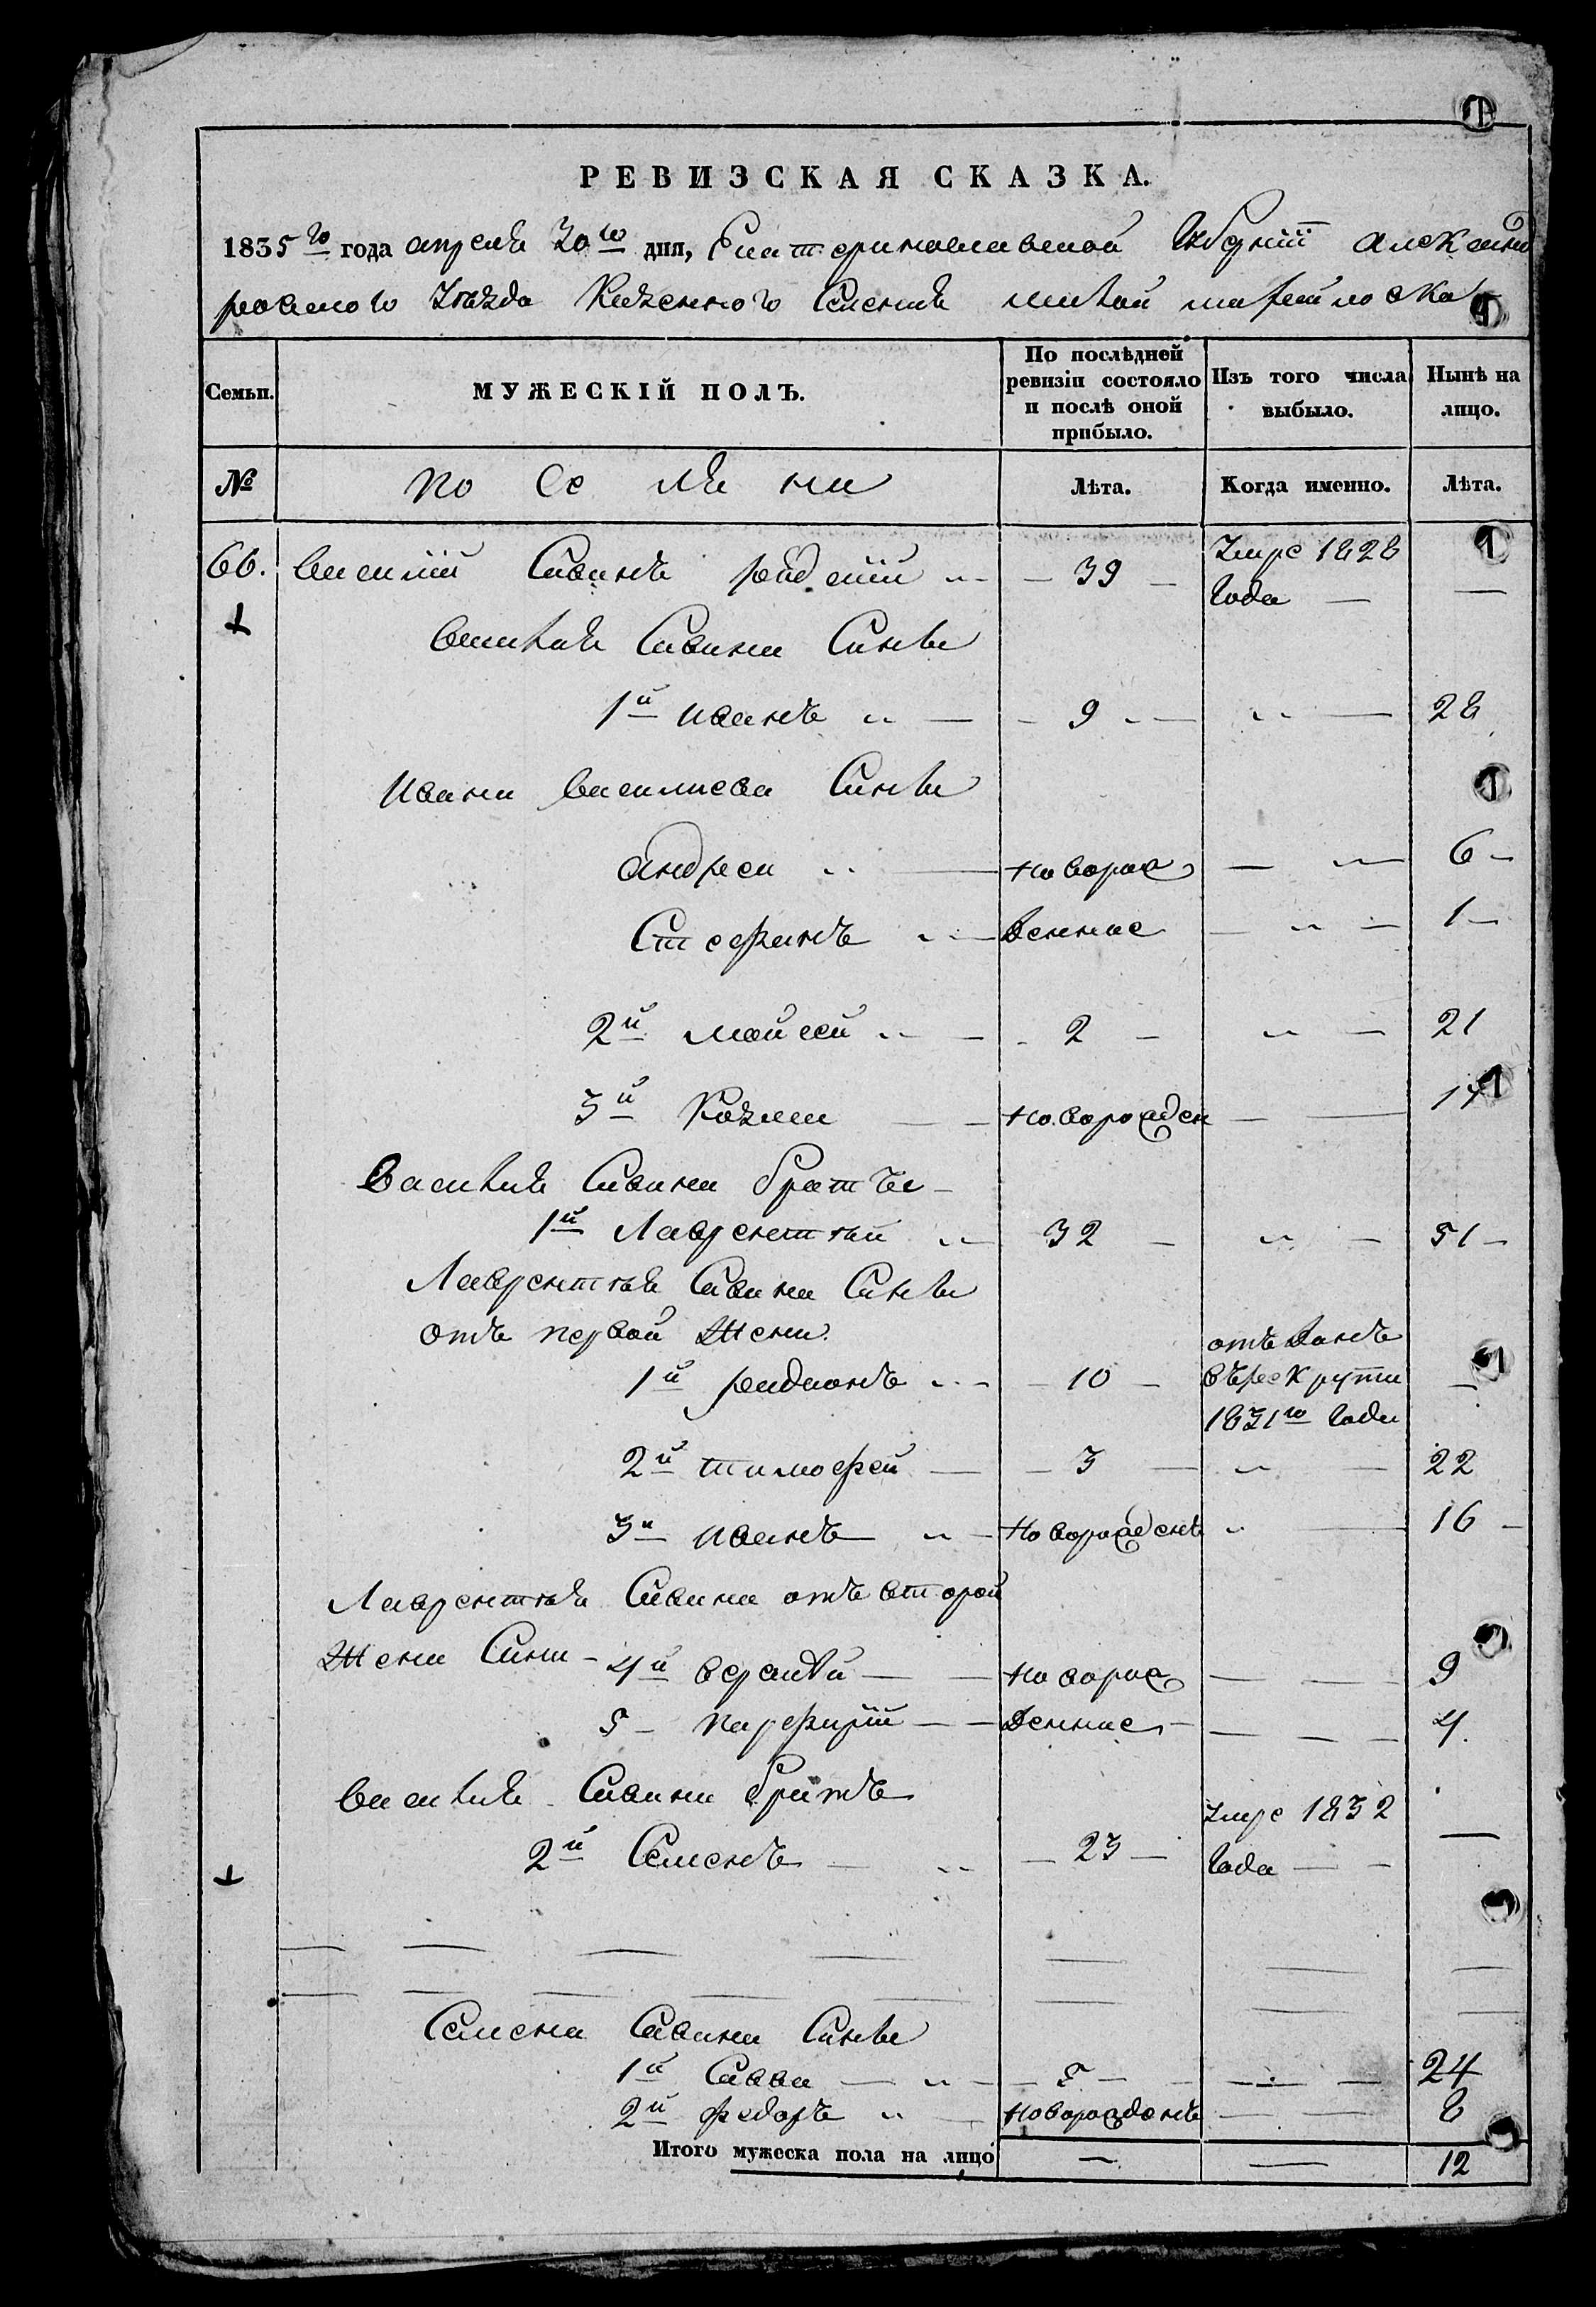 РЕВИЗСКАЯ СКАЗКА.
1835го года апреля 30го дня, Екатеринославской Губернiи Александ
ровского уезда Казенного Селения
Семьи.
МУЖЕСКIЙ ПОЛЪ.
По послѣдней ревизiи состояло и послѣ оной прибыло.
Изъ того числа выбыло.
Нынѣ на лицо.
№
по се ля ни
Лѣта.
Когда именно.
Лѣта.
66. Василiй Савинъ — 39 — Умре 1828
Года — —
Василiя Савина Синьи
1й Иванъ — 9 — — 28
Ивана Василиева Синьи
Андреи — новорож — — 6 —
Стефанъ — денние — — 1 —
2й Мойсей — 2 — — 21
3й Козма — новорожден — — 17
Василiя Савина братъи —
1й Лаврентiй — 32 — — 51 —
Лаврентiя Савина Синьи
отъ первой жени
отъданъ
1й радионъ — 10 — върекрути —
1831го Года
2й тимофей — 3 — — 22
3й Иванъ — новорожденъ — 16 —
Лаврентiя Савина отъ второй
жени Сини — 4й — новорож — — 9
5 — Парфирiй — денние — — 4.
Василiя Савина братъ
Умре 1832
2й Семенъ — 23 — Года — —
Семена Савина Синьи
1й Савва — 5 — — 24
2й федоръ — новорожденъ — — 8
Итого мужеска пола на лицо — — 12